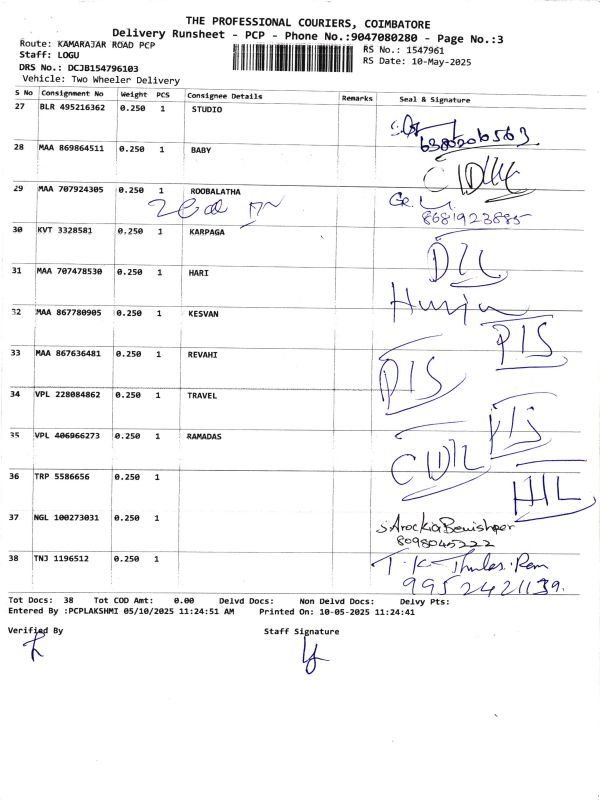 THE PROFESSIONAL COURIERS, COIMBATORE
Delivery Runsheet - PCP - Phone No.:9047080280 - Page No.:3
Route: KAMARAJAR ROAD PCP
RS No.: 1547961
Staff: LOGU
RS Date: 10-May-2025
DRS No.: DCJB154796103
Vehicle: Two Wheeler Delivery
S No Consignment No Weight PCS Consignee Details Remarks Seal & Signature
27 BLR 495216362 0.250 1 STUDIO
6380206563
28 MAA 869864511 0.250 1 BABY
29 MAA 707924305 0.250 1 ROOBALATHA
8681923885
30 KVT 3328581 0.250 1 KARPAGA
31 MAA 707478530 0.250 1 HARI
32 MAA 867780905 0.250 1 KESVAN
PIS
33 MAA 867636481 0.250 1 REVAHI
PIS
34 VPL 228084862 0.250 1 TRAVEL
PIS
35 VPL 406966273 0.250 1 RAMADAS
36 TRP 5586656 0.250 1
37 NGL 100273031 0.250 1
8098045222
38 TNJ 1196512 0.250 1
9952421139.
Tot Docs: 38 Tot COD Amt: 0.00 Delvd Docs: Non Delvd Docs: Delvy Pts:
Entered By :PCPLAKSHMI 05/10/2025 11:24:51 AM Printed On: 10-05-2025 11:24:41
Verified By Staff Signature